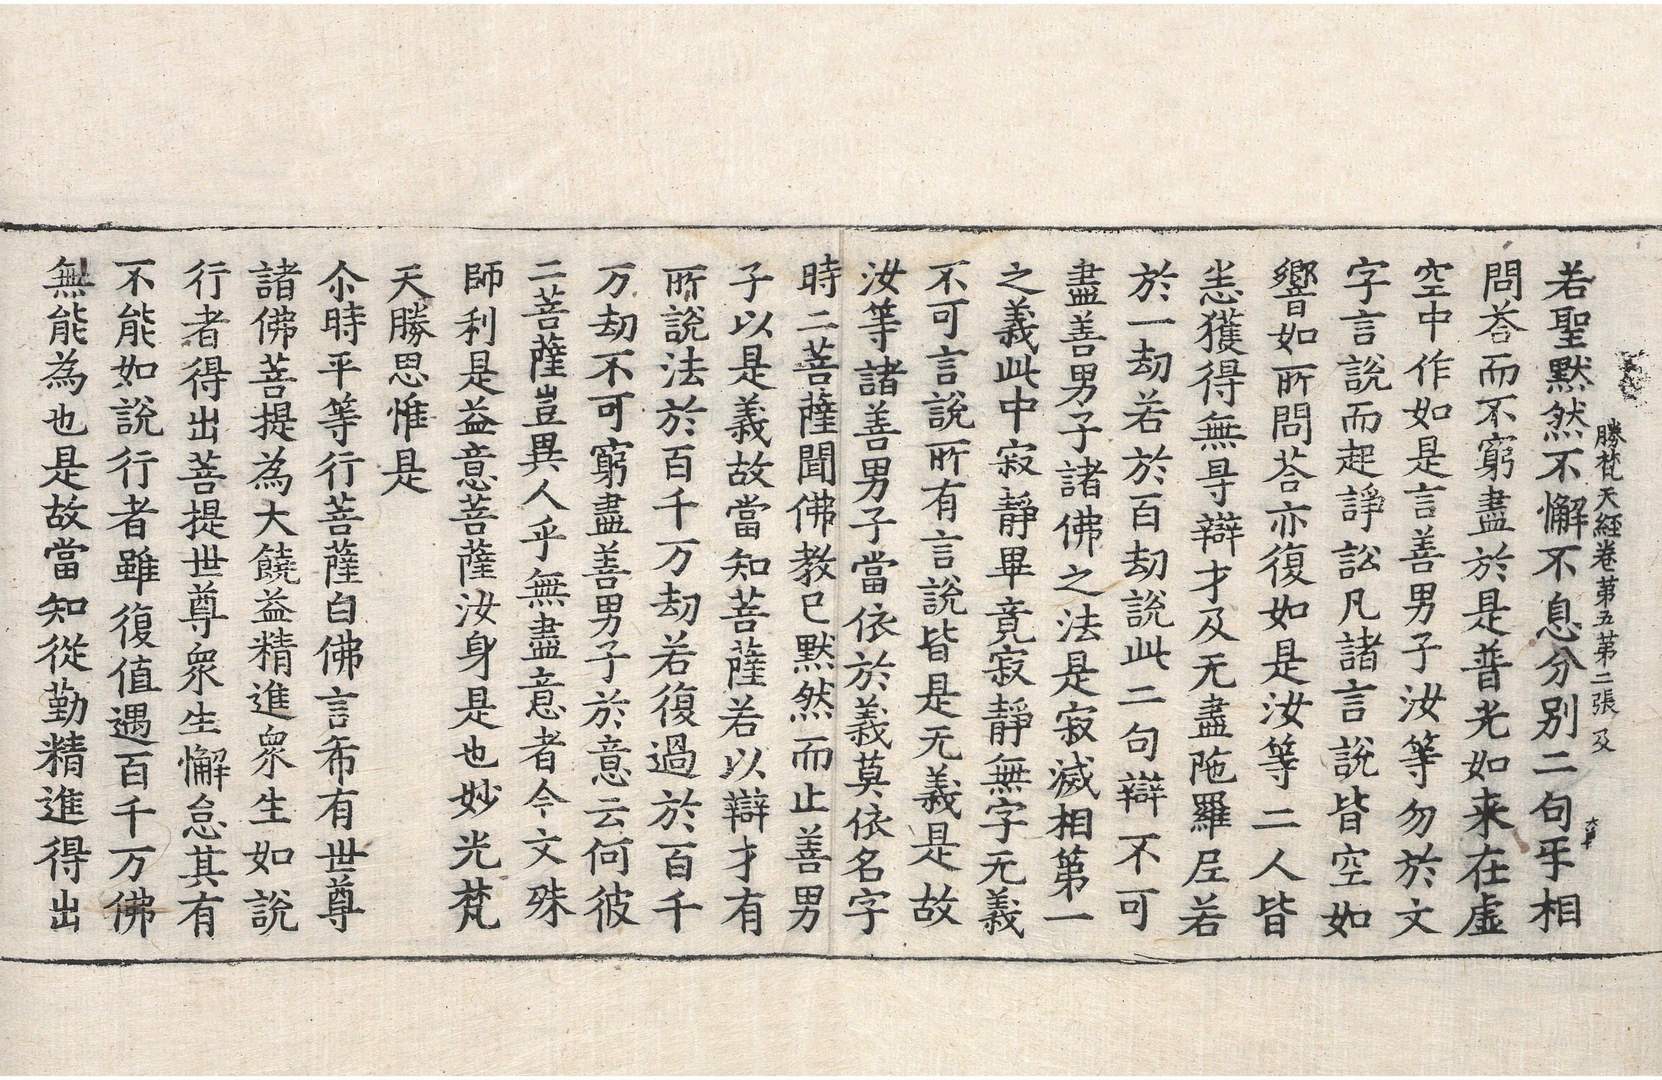 勝梵天經卷第五第二張 及
大甲
若聖默然不懈不息分別二句乎相
問荅而不窮盡於是普光如来在虛
空中作如是言善男子汝等勿於文
字言說而起諍訟凡諸言說皆空如
響如所問荅亦復如是汝等二人皆
恙獲得無㝵辯才及无盡陁羅尼若
於一劫若於百劫說此二句辯不可
盡善男子諸佛之法是寂滅相第一
之義此中寂靜畢竟寂靜無字无義
不可言說所有言說皆是无義是故
汝等諸善男子當依於義莫依名字
時二菩薩聞佛教已默然而止善男
子以是義故當知菩薩若以辯才有
所說法於百千万劫若復過於百千
万劫不可窮盡善男子於意云何彼
二菩薩豈異人乎無盡意者今文殊
師利是益意菩薩汝身是也妙光梵
天勝思惟是
尒時平等行菩薩白佛言希有世尊
諸佛菩提為大饒益精進衆生如說
行者得出菩提世尊衆生懈怠其有
不能如說行者雖復值遇百千万佛
無能為也是故當知從勤精進得出